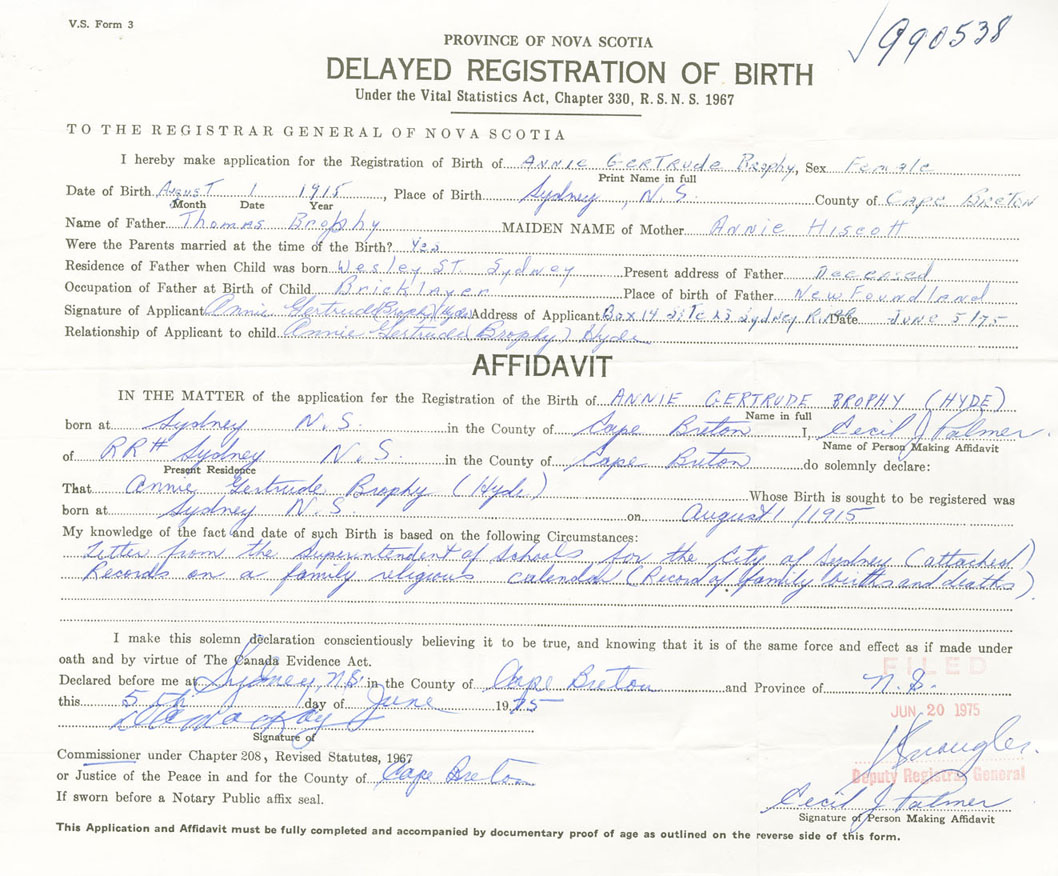 V.S. Form 3
990538
PROVINCE OF NOVA SCOTIA
DELAYED REGISTRATION OF BIRTH
Under the Vital Statistics Act, Chapter 330, R.S.N.S. 1967
TO THE REGISTRAR GENERAL OF NOVA SCOTIA
I hereby make application for the Registration of Birth of ANNIE GERTRUDE Brophy, Sex Female
Print Name in full
Date of Birth August 1 1915, Place of Birth Sydney, N.S. County of Cape Breton
Month Date Year
Name of Father Thomas Brophy MAIDEN NAME of Mother Annie Hiscott
Were the Parents married at the time of the Birth? Yes
Residence of Father when Child was born Wesley ST. Sydney Present address of Father Deceased
Occupation of Father at Birth of Child Bricklayer Place of birth of Father NewFoundland
Signature of Applicant Annie Gertrude (Brophy) Hyde Address of Applicant Box 14 Site 23 Sydney Date JUNE 5/75
Relationship of Applicant to child Annie Gertrude (Brophy) Hyde
AFFIDAVIT
IN THE MATTER of the application for the Registration of the Birth of ANNIE GERTRUDE BROPHY (HYDE)
Name in full
born at Sydney N.S. in the County of Cape Breton I, Cecil J Palmer
Name of Person Making Affidavit
of RR# Sydney N.S. in the County of Cape Breton do solemnly declare:
Present Residence
That Annie Gertrude Brophy (Hyde) Whose Birth is sought to be registered was
born at Sydney N.S. on August 1/1915
My knowledge of the fact and date of such Birth is based on the following Circumstances:
Letter from the Superintendent of Schools for the City of Sydney (attached)
Records on a family religious calendar (Record of family births and deaths).
I make this solemn declaration conscientiously believing it to be true, and knowing that it is of the same force and effect as if made under
oath and by virtue of The Canada Evidence Act.
FILED
Declared before me at Sydney, N.S. in the County of Cape Breton and Province of N.S.
this 5th day of June 1975
JUN 20 1975
Signature of
Commissioner under Chapter 208, Revised Statutes, 1967
or Justice of the Peace in and for the County of Cape Breton
Deputy Registrar General
If sworn before a Notary Public affix seal.
Cecil J Palmer
Signature of Person Making Affidavit
This Application and Affidavit must be fully completed and accompanied by documentary proof of age as outlined on the reverse side of this form.